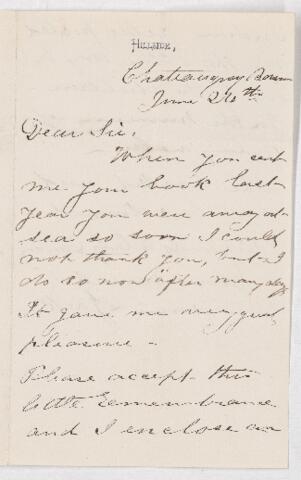 HILLSIDE,
Chateaugay
June 24th
Dear Sir,
When you sent
me your book last
year you were away at
sea so soon I could
not thank you, but I
do so now "after many days
It gave me very great
pleasure -
Please accept this
little remembrance
and I enclose an